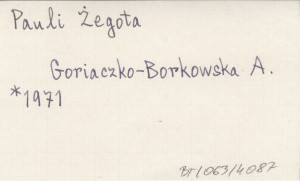 Pauli Żegota
Goriaczko-Borkowska A.
*1971
BT/063/4087